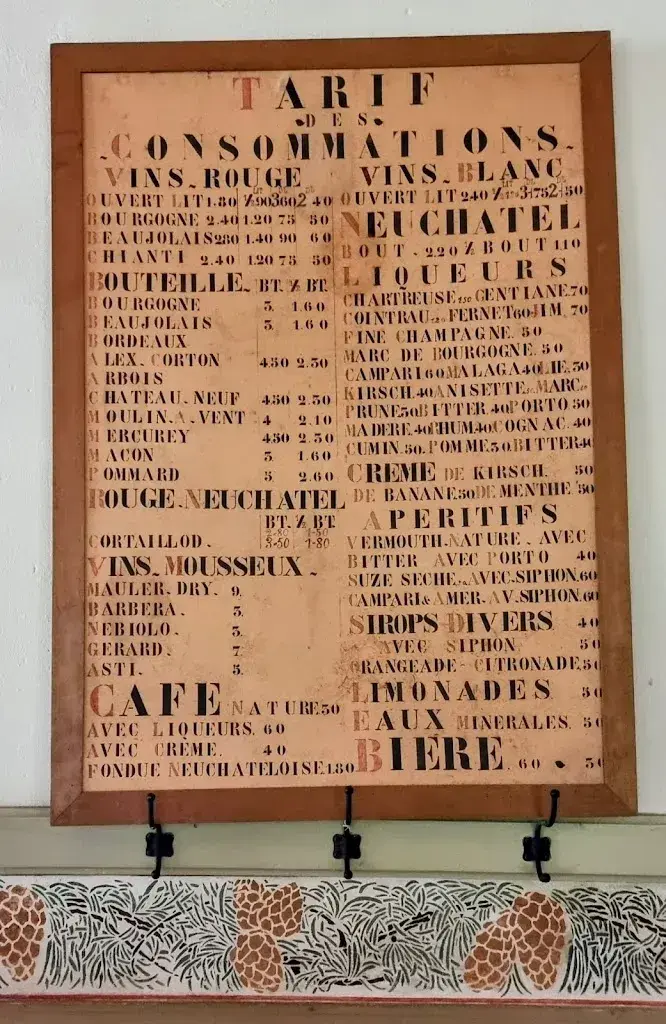 TARIF
DES
CONSOMMATIONS
VINS ROUGE
OUVERT LIT 1.80 ½ 90 3 60 2 40
BOURGOGNE 2.40 1.20 75 50
BEAUJOLAIS 280 1.40 90 60
CHIANTI 2.40 1.20 75 50
BOUTEILLE BT. ½ BT.
BOURGOGNE 3. 1.60
BEAUJOLAIS 3. 1.60
BORDEAUX
ALEX. CORTON 450 2.30
ARBOIS
CHATEAU. NEUF 450 2.30
MOULIN. A. VENT 4 2.10
MERCUREY 450 2.30
MACON 3. 1.60
POMMARD 5 2.60
ROUGE NEUCHATEL
BT. ½ BT.
CORTAILLOD. 3-50 1-80
VINS MOUSSEUX
MAULER. DRY. 9.
BARBERA. 3.
NEBIOLO. 3.
GERARD. 7.
ASTI. 5.
CAFE NATURE 30
AVEC LIQUEURS. 60
AVEC CREME. 40
FONDUE NEUCHATELOISE 1.80
VINS BLANC
OUVERT LIT 240 ½ 3 75 2 50
NEUCHATEL
BOUT. 2.20 ½ BOUT 1.10
LIQUEURS
CHARTREUSE 1.50 GENTIANE 70
COINTRAU FERNET 60 JIM. 70
FINE CHAMPAGNE. 50
MARC DE BOURGOGNE. 50
CAMPARI 60 MALAGA 40 LIE. 30
KIRSCH. 40 ANISETTE MARC
PRUNE 50 BITTER. 40 PORTO 50
MADERE. 40 RHUM. 40 COGNAC. 40
CUMIN. 50. POMME 30 BITTER 40
CREME DE KIRSCH. 50
DE BANANE 50 DE MENTHE 50
APERITIFS
VERMOUTH. NATURE. AVEC
BITTER AVEC PORTO 40
SUZE SECHE AVEC. SIPHON. 60
CAMPARI & AMER. AV. SIPHON. 60
SIROPS DIVERS 40
AVEC SIPHON 50
ORANGEADE CITRONADE. 50
LIMONADES 50
EAUX MINERALES. 50
BIERE. 60 . 30